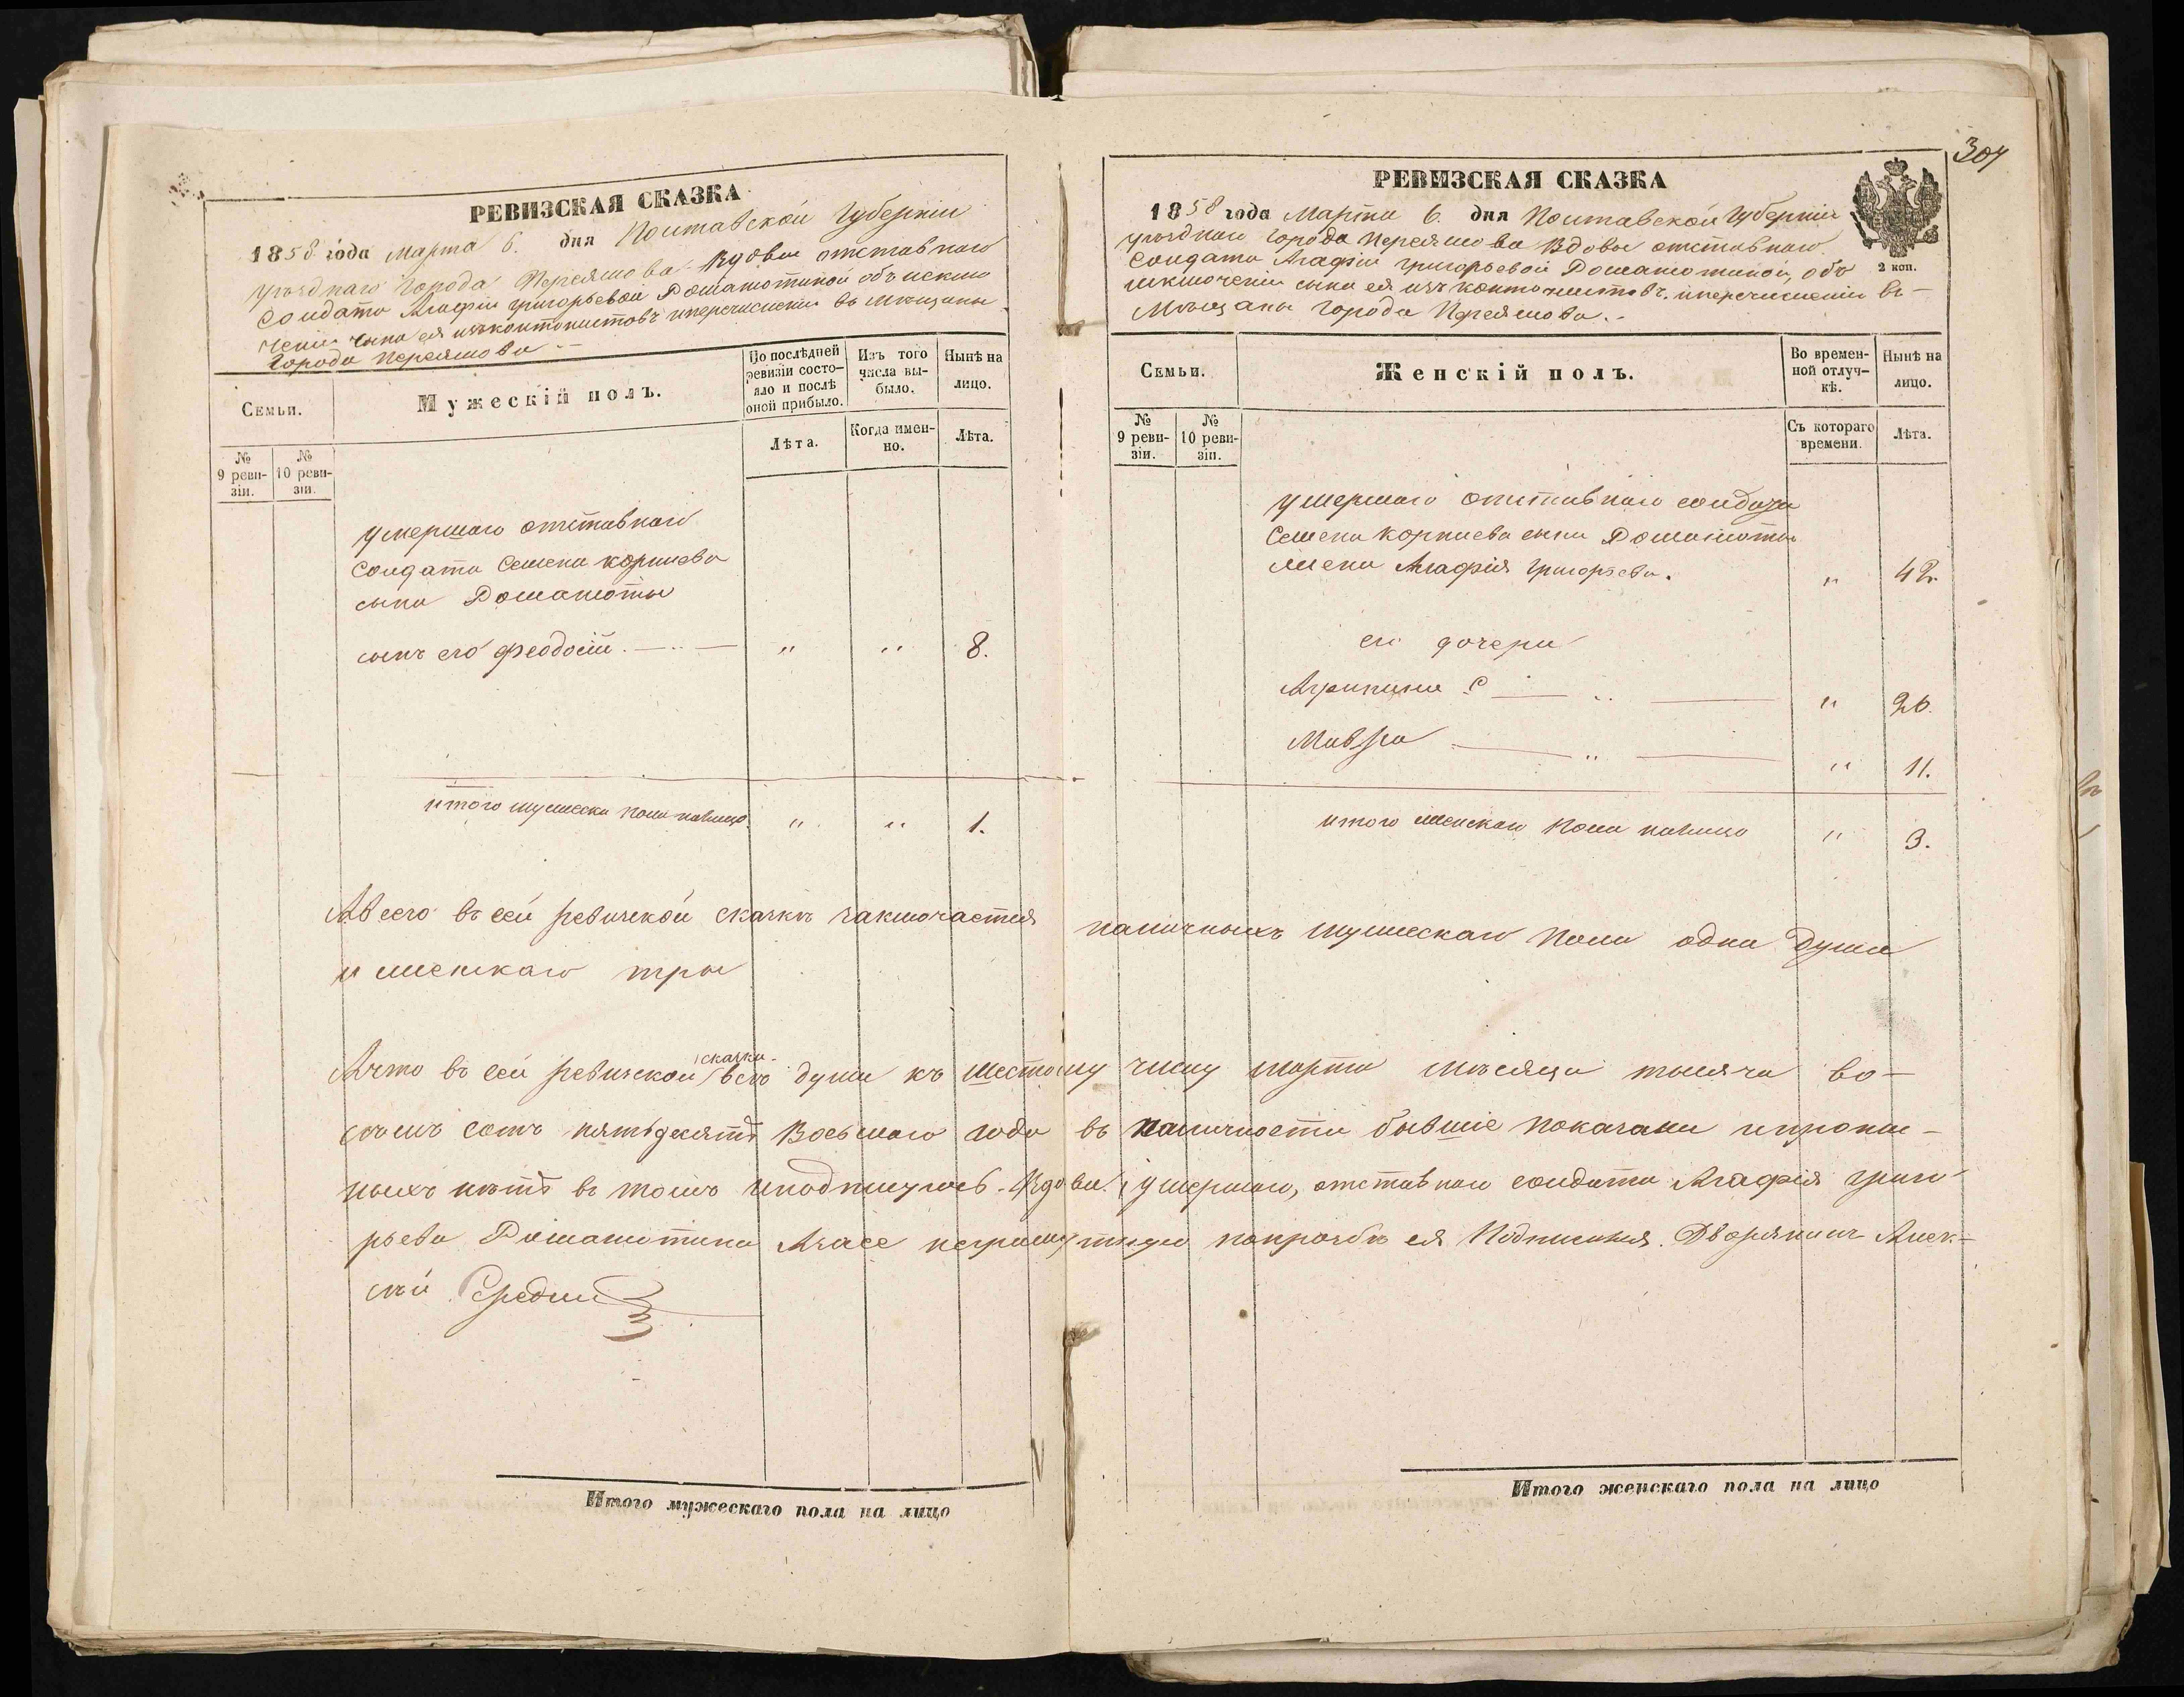 РЕВИЗСКАЯ СКАЗКА
1858 года марта 6. дня Полтавской Губерніи
уѣзднаго города Переяслова Вдовы отставнаго
Солдата Агафіи григорьевой Домашотиной объ исклю
ченіи сына ея изъ контонистовъ иперечисленіи въ мѣщаны
города Переяслова
Семьи.
Мужескій полъ.
По последней ревизіи состояло и послѣ оной прибыло.
Изъ того числа выбыло.
Нынѣ на лицо.
№ 9 ревизіи.
№ 10 ревизіи.
Лѣта.
Когда именно.
Лѣта.
умершаго отставнаго
Солдата Семена корниева
сына Домашоты
сынъ его феодосій. — „ „ 8.
итого мужеска пола налицо. „ „ 1.
РЕВИЗСКАЯ СКАЗКА
304
1858 года Марта 6. дня Полтавской Губерніи
уѣзднаго города Переяслова Вдовы отставнаго
Солдата Агафіи григорьевой Домашотиной, объ
исключеніи сына ея изъ контонистовъ. иперечисленіи въ
Мѣщаны города Переяслова.
2 коп.
Семьи.
Женскій полъ.
Во временной отлучкѣ.
Нынѣ на лицо.
№ 9 ревизіи.
№ 10 ревизіи.
Съ котораго времени.
Лѣта.
умершаго отставнаго солдата
Семена корниева сына Домашоты
жена Агафія григорьева. „ 42.
его дочери
Агрипина — „ 20.
Мавра — „ 11.
итого женскаго пола налицо „ 3.
Авсего въ сей ревизской сказкѣ заключается наличныхъ мужескаго пола одна душа
и женскаго три
Ачто въ сей ревизской сказки всѣ души къ шестому числу марта мѣсяца тысяча во-
сѣмъ сотъ пятьдесятъ Восьмаго года въ наличности бывшіе показаны ипропи-
ныхъ нѣтъ въ томъ иподпишуюсь. Вдова умершаго, отставнаго солдата Агафія григо
рьева Домашотина Азаее неграмотную попрозбѣ ея Подписался. Дворянинъ Алек-
сѣй Середин
Итого мужескаго пола на лицо
Итого женскаго пола на лицо